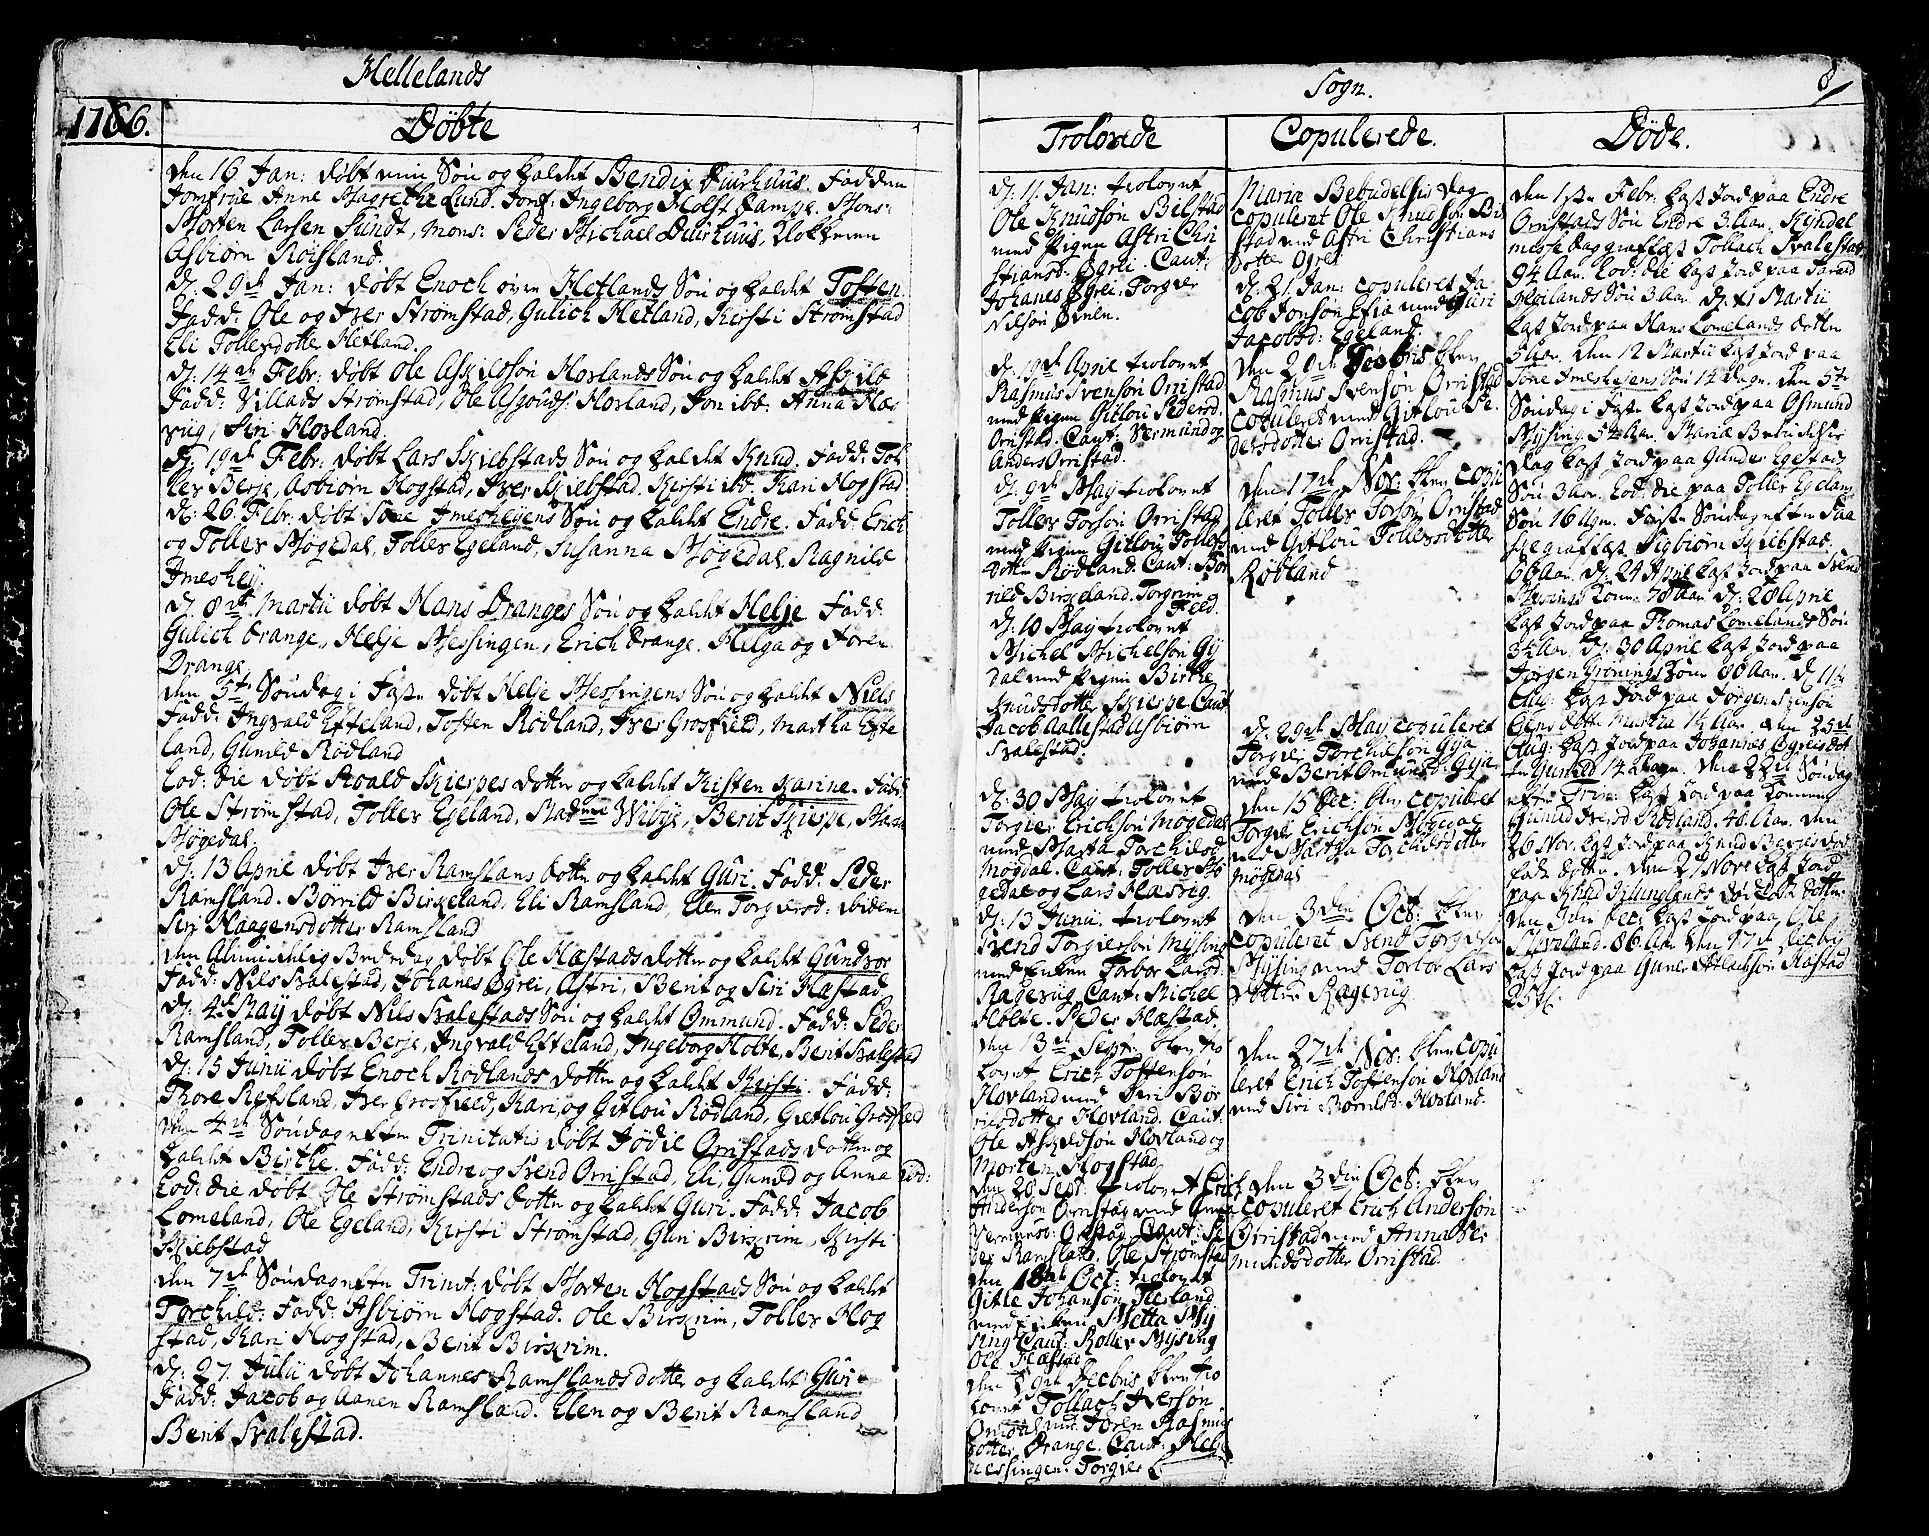 Hellelands
Sogn.
8
1766.
Døbte
den 16 Jan: døbt min Søn og kaldt Bendix Duurhuus. Fadden
Jomfrue Anne Magrethe Lund. Jomf: Ingeborg Holst Kamppe. Mons:
Morten Larsen Sundt, Mons: Peder Michael Duurhuus, Klokkeren
Asbiørn Røisland.
d: 29de Jan: døbt Enoch øvre Hetlands Søn og kaldt Tosten
Fadd: Ole og Iver Strømstad, Gulich Hetland, Kirsti Strømstad
Eli Tollefsdotter Hetland.
d: 14de Febr: døbt Ole Askildsøn Hovlands Søn og kaldt Askild
Fadd: Villads Strømstad, Ole Asgouds: Hovland, Jon ibd: Anna Hæs
vug, Siri Hovland.
d: 19de Febr: døbt Lars Skiebstads Søn og kaldt Knud. Fadd: Tol
lev Berje, Asbiørn Hogstad, Iver Skiebstad. Kirsti ibd: Kari Hogstad
d: 26 Febr: døbt Sone Imeshejens Søn og kaldt Endre. Fadd: Erich
og Tollev Møgedal, Tollev Egeland, Susanna Møgedal. Ragnild
Imeshej.
d: 8de Martii døbt Hans Dranges Søn og kaldt Helje Fadd:
Gulich Drange, Helje Messingen, Erich Drange. Helga og Joren
Drange.
den 5te Søndag i Faste døbt Helje Messingens Søn og kaldt Niels
Fadd: Ingvald Efteland, Tosten Rødland, Iver Grosfield, Martha Efte
land, Gunild Rødland
Eod: die døbt Roald Skierpes dotter og kaldt Kisten Karine. Fadd:
Ole Strømstad, Tollev Egeland, Madme Wibye, Berit Skierpe,
Møgedal.
d: 13 April døbt Iver Ramslans dotter og kaldt Guri. Fadd: Peder
Ramsland. Børrild Birkeland, Eli Ramsland, Elen Torgiersd: ibidem
Siri Haagensdotter Ramsland
den Almindelig Bededag døbt Ole Hæstads dotter og kaldt Gundvor
Fadd: Nils Svalestad, Johanes Øgrei, Astri, Berit og Siri Hæstad
d: 4de May døbt Nils Svalestads Søn og kaldt Ommund. Fadd: Peder
Ramsland, Tollev Berje, Ingvald Efteland, Ingeborg Holte, Berit Svalestad
d: 15 Junii døbt Enoch Rødlands dotter og kaldt Kirsti. Fadd:
Thore Refsland, Iver Grosfield, Kari og Gitlou Rødland, Gietlou Grosfield
den 4de Søndag efter Trinitatis døbt Jødie Orrestads dotter og
kaldt Birthe. Fadd: Endre og Svend Orristad, Eli, Gunild og Anna ibd:
Eod: die døbt Ole Strømstads dotter og kaldt Guri. Fadd: Jacob
Lomeland, Ole Egeland, Kirsti Strømstad, Guri Birkrim, Kirsti
Skiebstad
den 7de Søndag efter Trinit: døbt Morten Hogstads Søn og kaldt
Torchild: Fadd: Asbiørn Hogstad. Ole Birkrim, Tollev Hog
stad, Kari Hogstad, Berit Birkrim.
d: 27 Julii døbt Johannes Ramslands dotter og kaldt Guri
Fadd: Jacob og Aanen Ramsland. Elen og Berit Ramsland
Berit Svalestad.
Trolovede
d: 11 Jan: trolovet
Ole Knudsøn Bilstad
med Pigen Astri Chri
stiansd: Øgrei Caut:
Johanes Øgrei. Torgier
Nilsøn
d: 19de April trolovet
Rasmus Svensøn Orristad
med Pigen Gitlou Pedersd:
Orristad. Caut: Vermund og
Anders Orristad.
d: 9de May trolovet
Tollev Torsøn Orristad
med Pigen Gitlou Tollefs
dotter Rødland: Caut: Bør
rild Birkeland. Torgrim
Field.
d: 10 May trolovet
Michel Michelsøn Gy
dal med Pigen Birthe
Knudsdotter Skierpe Caut
Jacob Aallestad Asbiørn
Svalestad.
d: 30 May trolovet
Torgier Erichsøn Møgedal
med Marta Torchildsd
Møgdal. Caut: Tollev Mø
gedal og Lars Hæsvig.
d: 13 Junii. trolovet
Svend Torgiersøn Mysing
med Enken Torbor Larsd:
Ragevug Caut: Michel
Holte. Peder Hæstad.
den 13de Sept: blev tro
lovet Erich Tostensøn
Hovland med Siri Bør
rildsdotter Hovland. Caut:
Ole Askildsøn Hovland og
Morten Hogstad
den 28 Sept: trolovet Erich
Andersøn Orristad med Anna
Vermunds: Orristad Caut: Pe
der Ramsland. Ole Strømstad
den 18de Oct: trolovet
Gitle Johansøn Fierland
med Enken Metta My
sing Caut: Rollev Mysing
Ole Hæstad
den 19de Decbris blev tro
lovet Tollach Iversøn
med Joren Rasmus
dotter Drange. Caut: Helje
Messingen. Torgier
Copulerede.
Mariæ Bebudelsis Dag
copuleret Ole Knudsøn Bil
stad med Astri Christians
dotter Øgrei
d: 21 Jan: copuleret Ja
cob Jonsøn Efia med Guri
Jacobsd: Egeland.
den 20de blev
Rasmus Svensøn Orristad
copuleret med Gitlou Pe
dersdotter Orristad.
den 17de Nov: blev copu
leret Tollev Torsøn Orristad
med Gitlou Tollevsdotter
Rødland
d: 29de May copuleret
Torgier Torchilsøn Gya
med Berit Omunds: Gya
den 15 Dec: blev copuleret
Torgier Erichsøn Møgedal
med Martha Torchildsdotter
Møgedal
den 3die Oct: blev
copuleret Svend Torgiersøn
Mysing med Torbor Lars
dotter Ragevug.
den 27de Nov: blev copu
leret Erich Tostensøn Hovland
med Siri Børrilds: Hovland.
den 3die Oct: blev
copuleret Erich Andersøn
Orristad med Anna Ver
mundsdotter Orristad.
Døde.
den 1ste Febr: kast Jord paa Endre
Orrestads Søn Endre 3 Aar. Kyndel
messe dag graffæst Tollach Svalestad
94 Aar. Eod: die kast Jord paa Tarald
Søn 3 Aar. d: 1 Martii
kast Jord paa Hans Lomelands dotter
5 Aar. den 12 Martii kast Jord paa
Sone Imeshejens Søn 14 dage. den 5te
Søndag i Faste kast Jord paa Osmund
Mysing 54 Aar. Mariæ Bebudelsis
dag kast Jord paa Gunder Egestads
Søn 3 Aar. Eod: die paa Tollev Egelans
Søn 16 Uger. Første Søndag efter Paa
ske graffæst Sigbiørn Skiebstad:
66 Aar. d: 24 April kast Jord paa Svend
Mysings Kone: 78 Aar d: 28 April
kast Jord paa Thomas Lomelands Søn
3½ Aar. d: 30 April kast Jord paa
Jørgen Grønings Søn: 86 Aar. d: 11te
Aug: kast Jord paa Jørgen Svensøn
Eies dotter Martha 14 Aar. den 25de
Aug: kast Jord paa Johannes Øgreis dot
ter Gunild 14 Dage. den 22de Søndag
efter Trin: kast Jord paa Konnen
Gunild Iversd Rødland. 40 Aar. den
26 Nov. kast Jord paa Knud Berjes død
født dotter. Den 27 Nov: kast Jord
paa Knud Klunglands død født dotter.
den 3die Dec: kast Jord paa Ole
Sloveland. 86 Aar den 17de Decbris
kast Jord paa Guner Atlachsøn Røstad